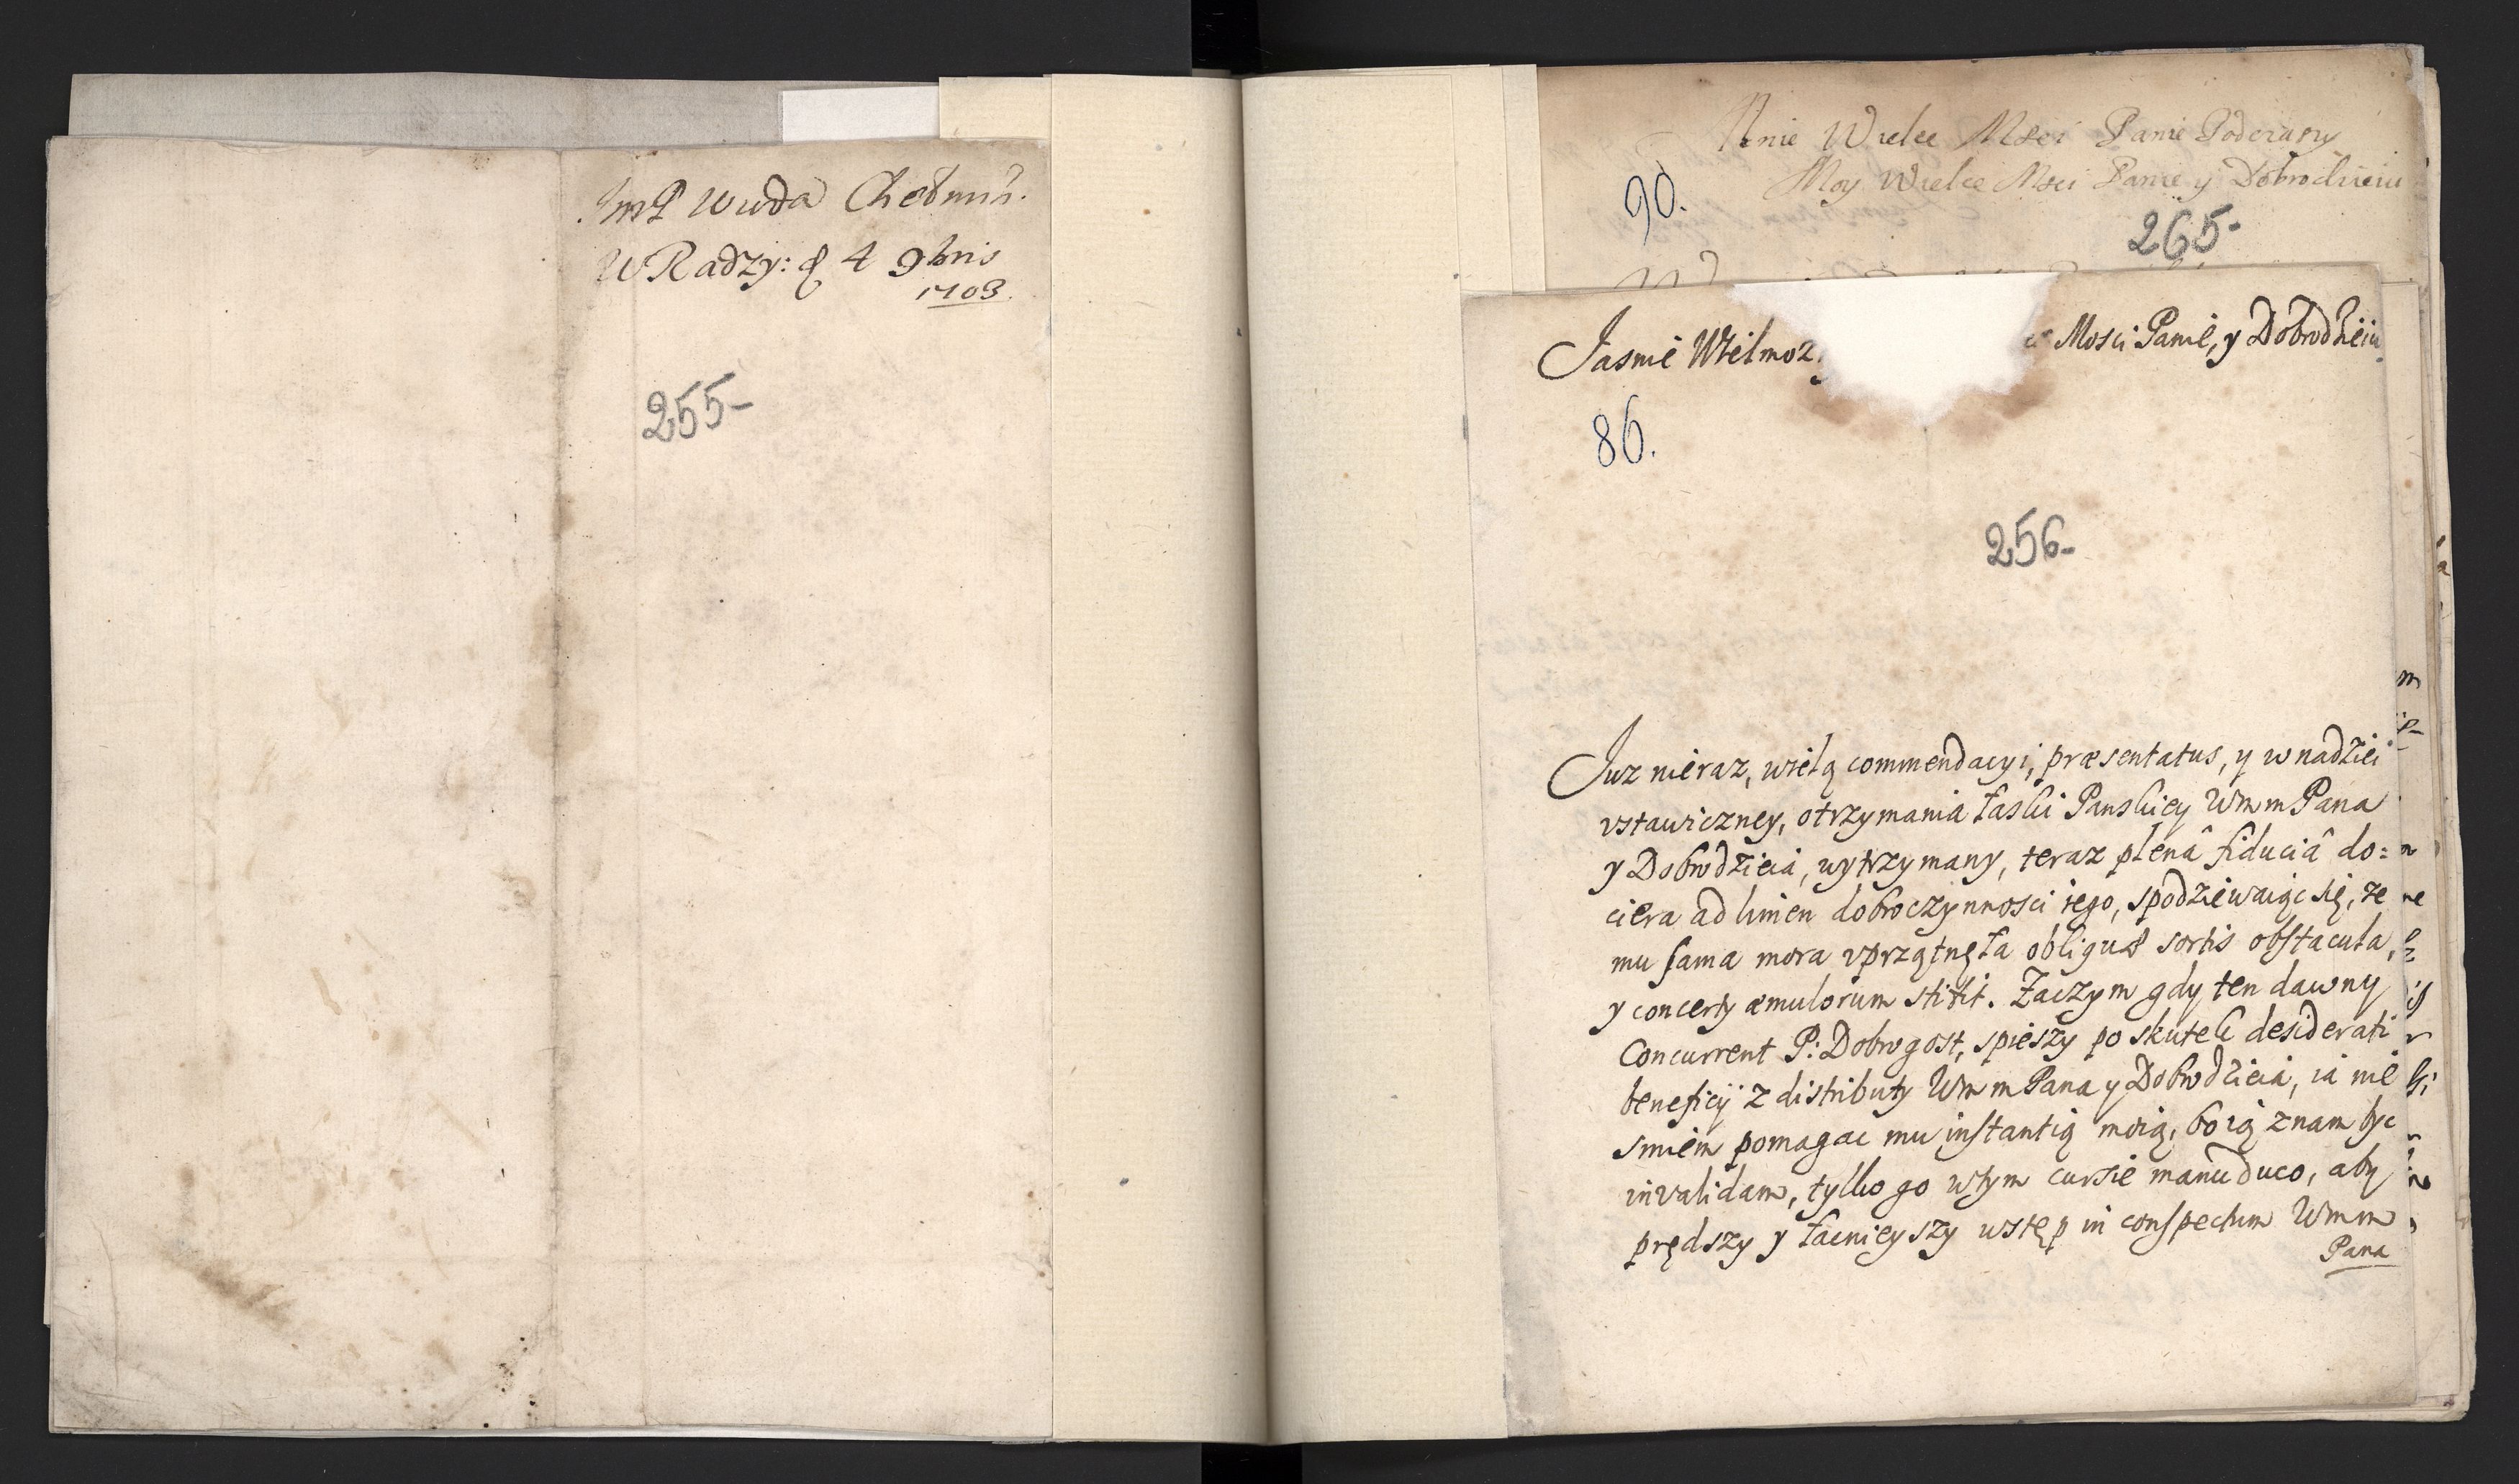 ImP Wuda Chełmiń.
W Radzy: d 4 9bris
1703.
255-
Mnie Wielce Msci Panie Podczaszy
Moy Wielce Msci Panie y Dobrodzieiu
90.
265-
Jasnie Wielmoz Mosci Panie, y Dobrodzieiu
86.
256-
Juz nieraz, wielą commendacyi, præsentatus, y w nadziei
vstawiczney, otrzymania łaski Panskiey Wmm Pana
y Dobrodzieia, wytrzymany, teraz plenâ fiduciâ do=
ciera ad limen dobroczynnosci iego, spodziewaiąc się, ze
mu sama mora vprzątnęła sortis obstacula,
y concerty æmulorum stitit. Zaczym gdy ten dawny
Concurrent P: Dobrogost, spieszy po skutek desiderati
beneficij z distributy Wmm Pana y Dobrodzieia, ia nie
smiem pomagac mu instantią moią, bo ią znam byc
invalidam, tylko go w tym cursie manuduco, aby
prędszy y łacnieyszy wstęp in conspectum Wmm
Pana